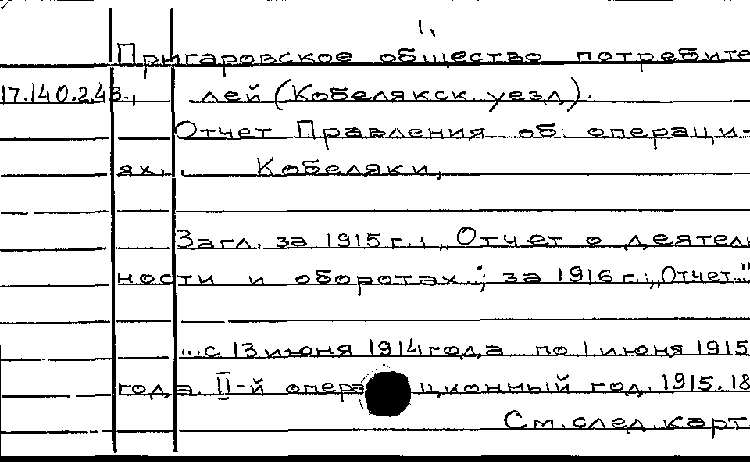 1.
Пригаровское общество потребите
17.140.248., лей (Кобелякск. уезд).
Отчет Правления об операци-
ях. Кобеляки,
Загл. за 1915 г.: „Отчет о деятель
ности и оборотах..."; за 1916 г.: „Отчет..."
...с 13 июня 1914 года по 1 июня 1915
года. II-й операционный год. 1915. 18
См. след. карт